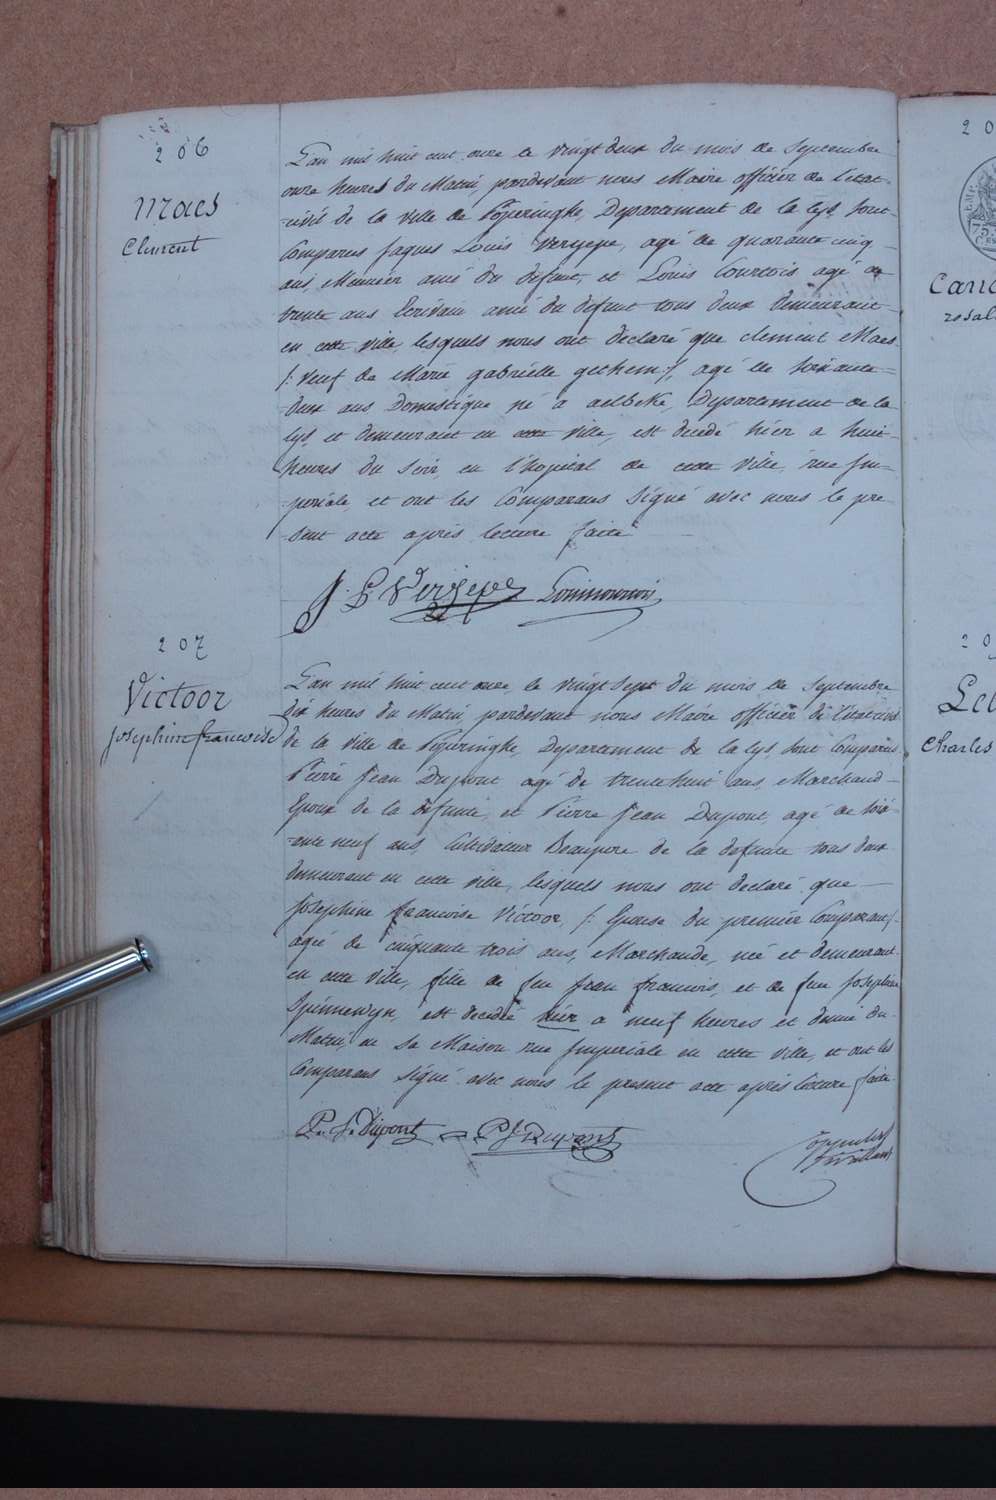 206
Maes
Clement
L'an mil huit cent onze le vingt deux du mois de Septembre
onze heures du Matin, pardevant nous Maire officier de l'etat-
-civil de la ville de Poperinghe, Departement de la lys, sont
Comparus Jaques Louis Veryepe, agé de quarante cinq
ans, Meunier amié du défunt, et Louis Courtois agé de
trente ans Ecrivain amié du défunt tous deux demeurant
en cette ville, lesquels nous ont declaré que clement Maes
/: veuf de Marie gabrielle gethem :/, agé de soixante-
-deux ans Domestique né a aelbeke, Departement de la
lys, et demeurant en cette ville, est decédé hier a huit-
-heures du soir, en l'hopital de cette ville, rue Im-
-periale et ont les Comparans signé avec nous le pre-
-sent acte après lecture faite
J. L. Veryepe
207
Victoor
josephine francoise
L'an mil huit cent onze, le vingt sept du mois de Septembre
dix heures du Matin, pardevant nous Maire officier de l'etat civil
de la ville de Poperinghe, Departement de la lys, sont Comparus
Pierre Jean Dupont agé de trente huit ans, Marchand-
Epoux de la défunte, et Pierre Jean Dupont, agé de soix-
-ante neuf ans, Cultivateur Beaupere de la defunte tous deux
demeurant en cette ville, lesquels nous ont declaré que
Josephine francoise Victoor, /: Epouse du premier Comparant /-
agée de cinquante trois ans, Marchande, née et demeurant
en cette ville, fille de feu Jean francois, et de feue Josephine
Spinnewyn, est decédée hier a neuf heures et demie du
Matin, en sa Maison rue Imperiale en cette ville, et ont les
Comparans signé avec nous le present acte après lecture faite
P. J. Dupont P J Dupont
20
Charles